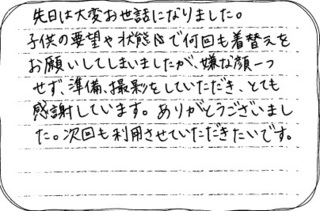 先日は大変お世話になりました。
子供の要望や状態で何回も着替えを
お願いしてしまいましたが、嫌な顔一つ
せず、準備、撮影をしていただき、とても
感謝しています。ありがとうございまし
た。次回も利用させていただきたいです。